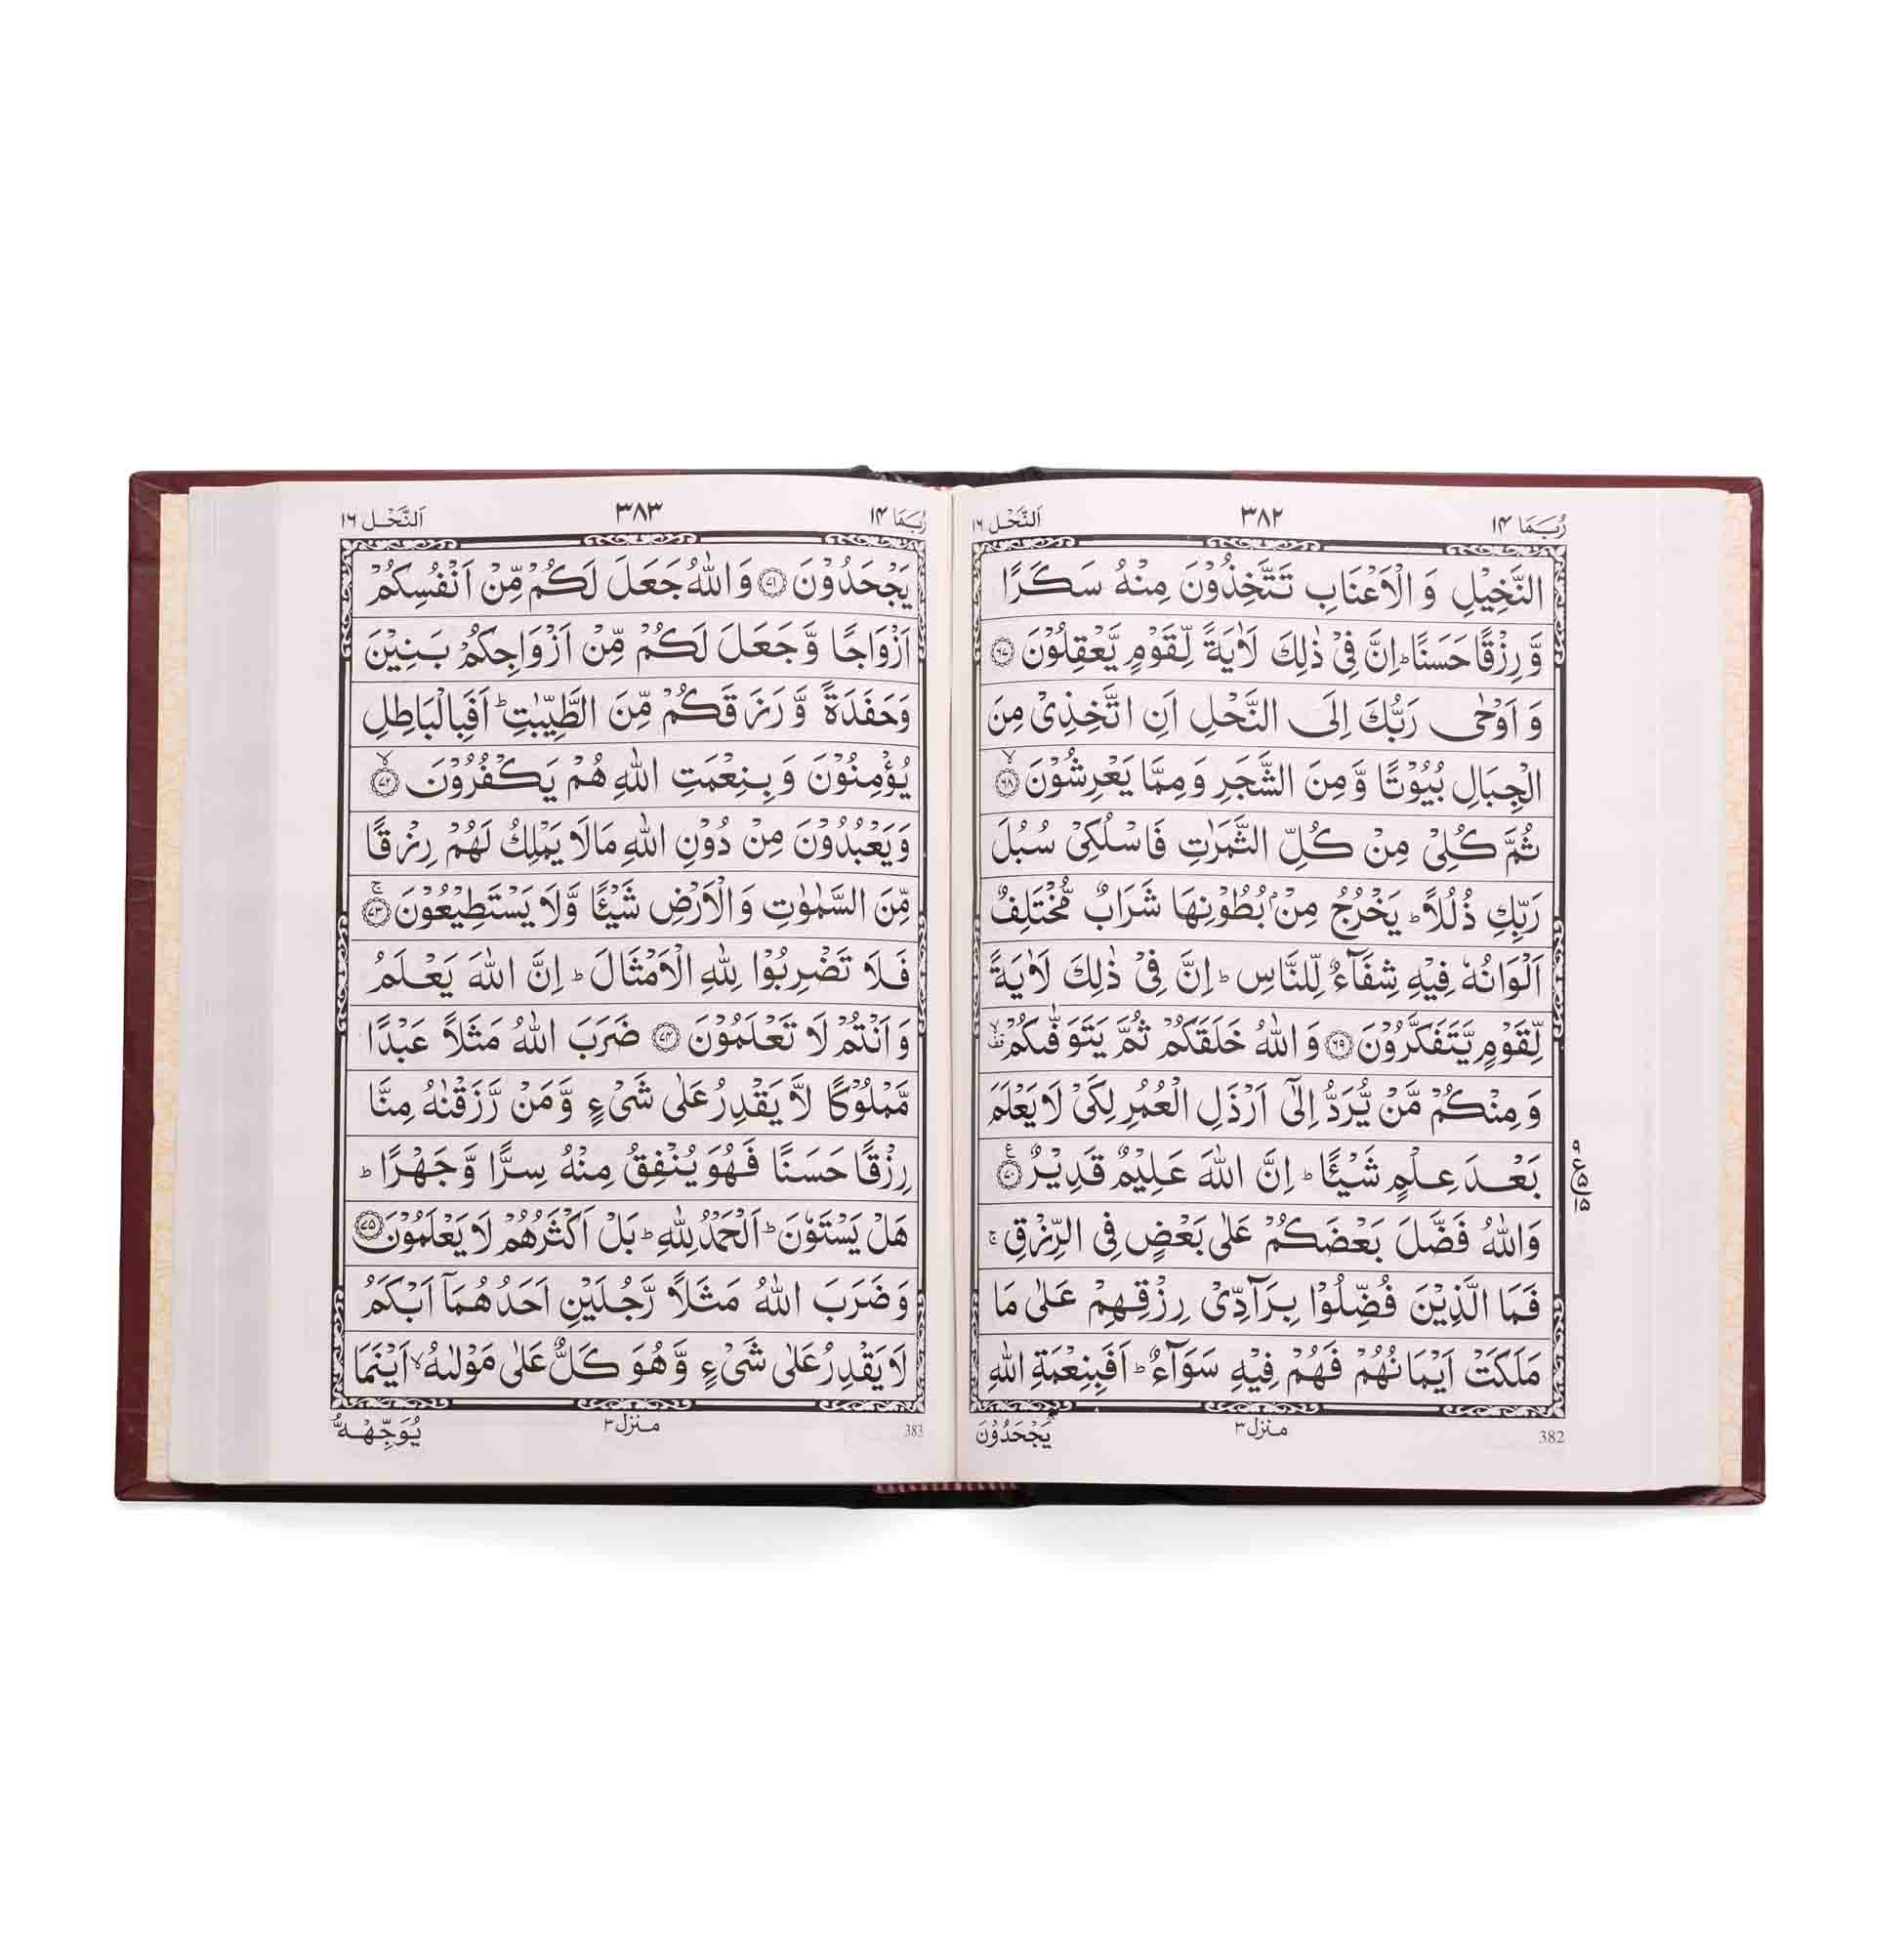 رُبَمَا ١٤
٣٨٢
اَلنَّحْل ١٦
النَّخِيْلِ وَ الْاَعْنَابِ تَتَّخِذُوْنَ مِنْهُ سَكَرًا
وَّ رِزْقًا حَسَنًاؕ اِنَّ فِىْ ذٰلِكَ لَاٰيَةً لِّقَوْمٍ يَّعْقِلُوْنَ ﴿۶۷﴾
وَ اَوْحٰى رَبُّكَ اِلَى النَّحْلِ اَنِ اتَّخِذِىْ مِنَ
الْجِبَالِ بُيُوْتًا وَّ مِنَ الشَّجَرِ وَ مِمَّا يَعْرِشُوْنَۙ ﴿۶۸﴾
ثُمَّ كُلِىْ مِنْ كُلِّ الثَّمَرٰتِ فَاسْلُكِىْ سُبُلَ
رَبِّكِ ذُلُلًاؕ يَخْرُجُ مِنْۢ بُطُوْنِهَا شَرَابٌ مُّخْتَلِفٌ
اَلْوَانُهٗ فِيْهِ شِفَآءٌ لِّلنَّاسِؕ اِنَّ فِىْ ذٰلِكَ لَاٰيَةً
لِّقَوْمٍ يَّتَفَكَّرُوْنَ ﴿۶۹﴾ وَ اللّٰهُ خَلَقَكُمْ ثُمَّ يَتَوَفّٰٮكُمْ
وَ مِنْكُمْ مَّنْ يُّرَدُّ اِلٰٓى اَرْذَلِ الْعُمُرِ لِكَىْ لَا يَعْلَمَ
بَعْدَ عِلْمٍ شَيْـًٔاؕ اِنَّ اللّٰهَ عَلِيْمٌ قَدِيْرٌ ﴿۷۰﴾
وَ اللّٰهُ فَضَّلَ بَعْضَكُمْ عَلٰى بَعْضٍ فِى الرِّزْقِۚ
فَمَا الَّذِيْنَ فُضِّلُوْا بِرَآدِّىْ رِزْقِهِمْ عَلٰى مَا
مَلَكَتْ اَيْمَانُهُمْ فَهُمْ فِيْهِ سَوَآءٌؕ اَفَبِنِعْمَةِ اللّٰهِ
382
منزل ٣
يَجْحَدُوْنَ
رُبَمَا ١٤
٣٨٣
اَلنَّحْل ١٦
يَجْحَدُوْنَ ﴿۷۱﴾ وَ اللّٰهُ جَعَلَ لَكُمْ مِّنْ اَنْفُسِكُمْ
اَزْوَاجًا وَّ جَعَلَ لَكُمْ مِّنْ اَزْوَاجِكُمْ بَنِيْنَ
وَ حَفَدَةً وَّ رَزَقَكُمْ مِّنَ الطَّيِّبٰتِؕ اَفَبِالْبَاطِلِ
يُؤْمِنُوْنَ وَ بِنِعْمَتِ اللّٰهِ هُمْ يَكْفُرُوْنَۙ ﴿۷۲﴾
وَ يَعْبُدُوْنَ مِنْ دُوْنِ اللّٰهِ مَا لَا يَمْلِكُ لَهُمْ رِزْقًا
مِّنَ السَّمٰوٰتِ وَ الْاَرْضِ شَيْـًٔا وَّ لَا يَسْتَطِيْعُوْنَۚ ﴿۷۳﴾
فَلَا تَضْرِبُوْا لِلّٰهِ الْاَمْثَالَؕ اِنَّ اللّٰهَ يَعْلَمُ
وَ اَنْتُمْ لَا تَعْلَمُوْنَ ﴿۷۴﴾ ضَرَبَ اللّٰهُ مَثَلًا عَبْدًا
مَّمْلُوْكًا لَّا يَقْدِرُ عَلٰى شَىْءٍ وَّ مَنْ رَّزَقْنٰهُ مِنَّا
رِزْقًا حَسَنًا فَهُوَ يُنْفِقُ مِنْهُ سِرًّا وَّ جَهْرًاؕ
هَلْ يَسْتَوٗنَؕ اَلْحَمْدُ لِلّٰهِؕ بَلْ اَكْثَرُهُمْ لَا يَعْلَمُوْنَ ﴿۷۵﴾
وَ ضَرَبَ اللّٰهُ مَثَلًا رَّجُلَيْنِ اَحَدُهُمَاۤ اَبْكَمُ
لَا يَقْدِرُ عَلٰى شَىْءٍ وَّ هُوَ كَلٌّ عَلٰى مَوْلٰٮهُۙ اَيْنَمَا
383
منزل ٣
يُوَجِّهْهُّ